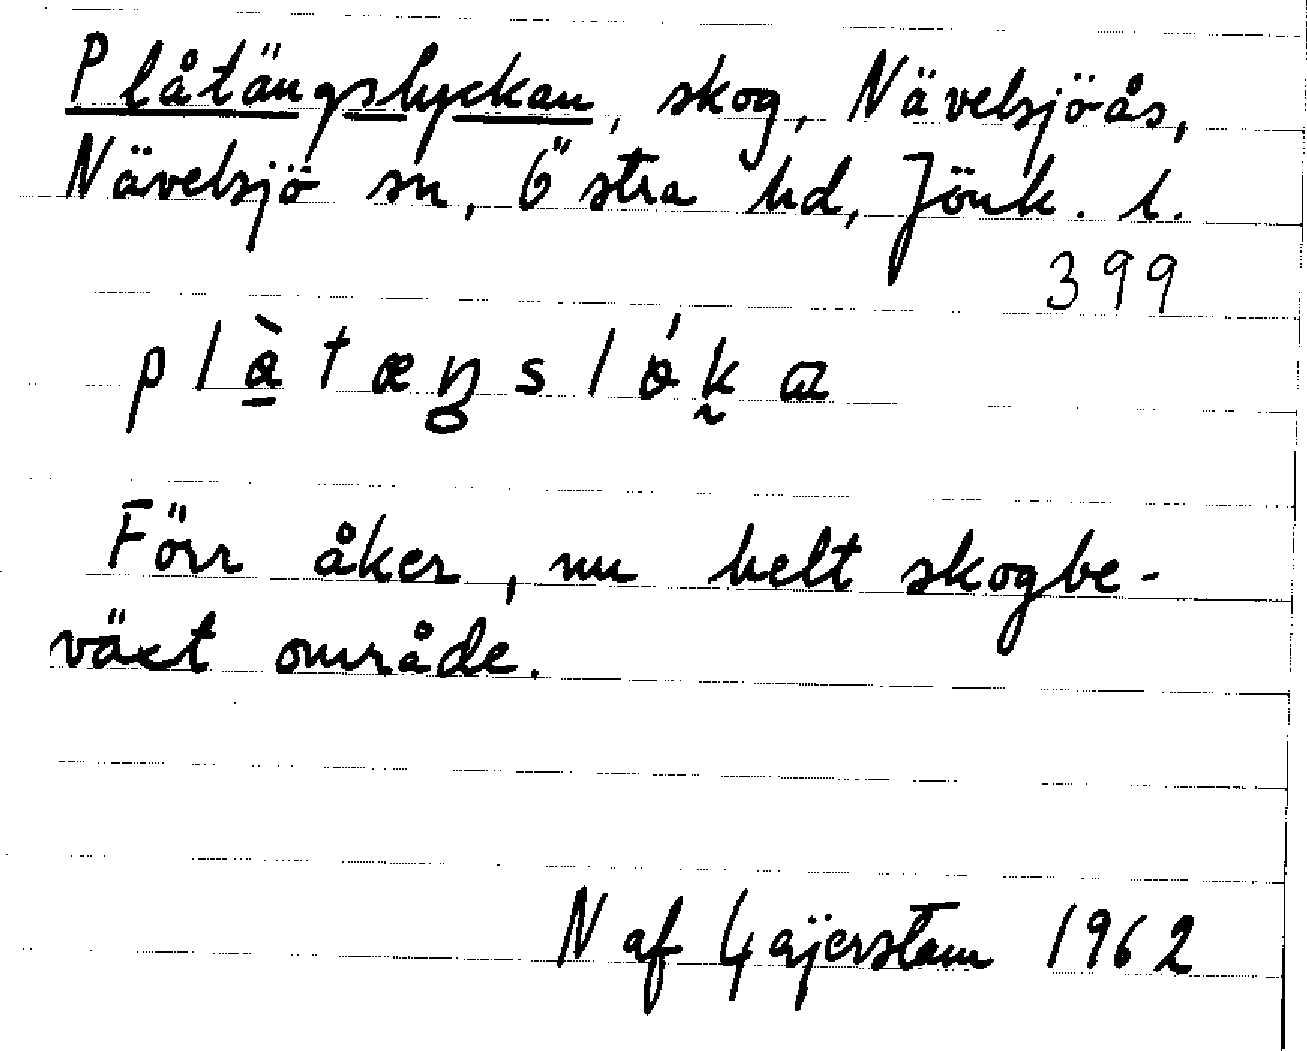 Plåtängslyckan, skog, Nävelsjöås,
Nävelsjö sn, Östra hd, Jönk. l.
399
Förr åker, nu helt skogbe-
växt område.
N af Geijerstam 1962